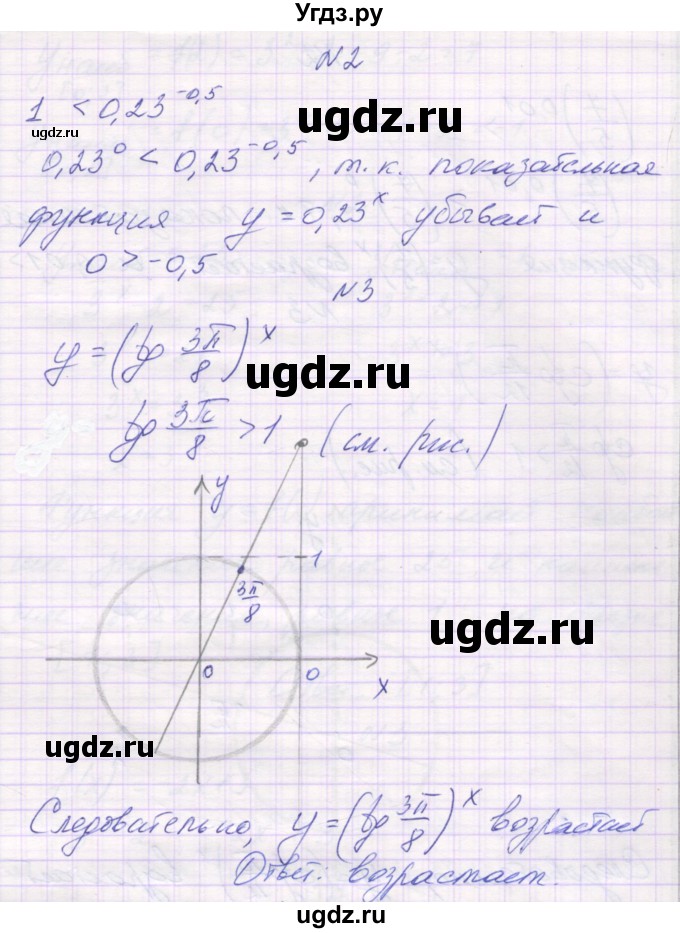 Угдз.ру
N2
1 < 0,23^-0,5
ugdz.ru
ugdz.ru
0,23^0 < 0,23^-0,5, т.к. показательная
функция y = 0,23^x убывает и
0 > -0,5
N3
y = (tg 3π/8)^x
ugdz.ru
tg 3π/8 > 1 (см. рис.)
y
1
3π/8
ugdz.ru
0
0
x
ugdz.ru
Следовательно, y = (tg 3π/8)^x возрастает
Ответ: возрастает.
ugdz.ru